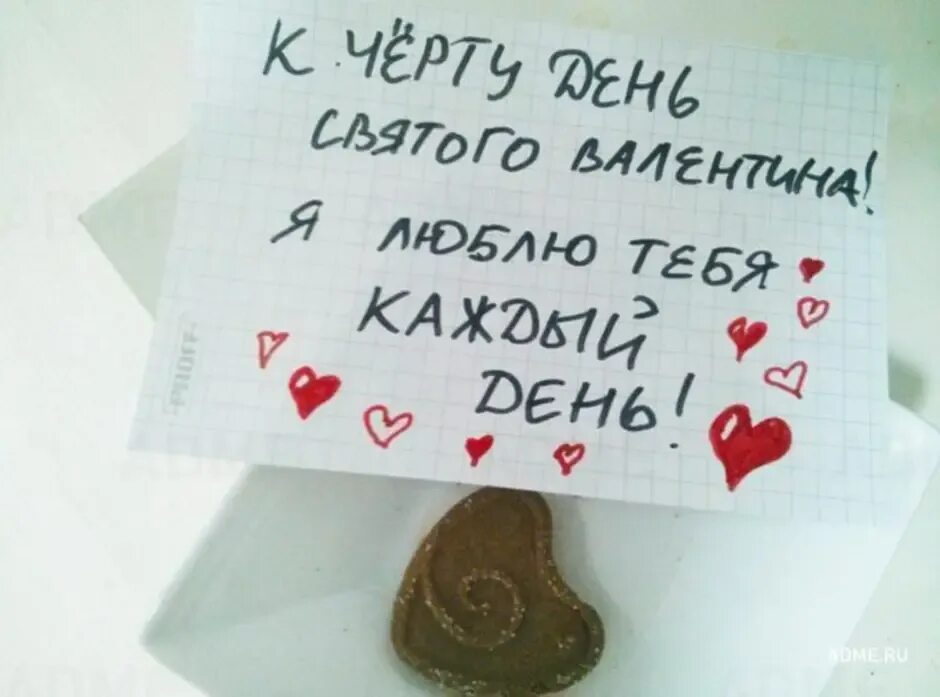 К ЧЁРТУ ДЕНЬ
СВЯТОГО ВАЛЕНТИНА!
Я ЛЮБЛЮ ТЕБЯ
КАЖДЫЙ
ДЕНЬ!
ADME.RU